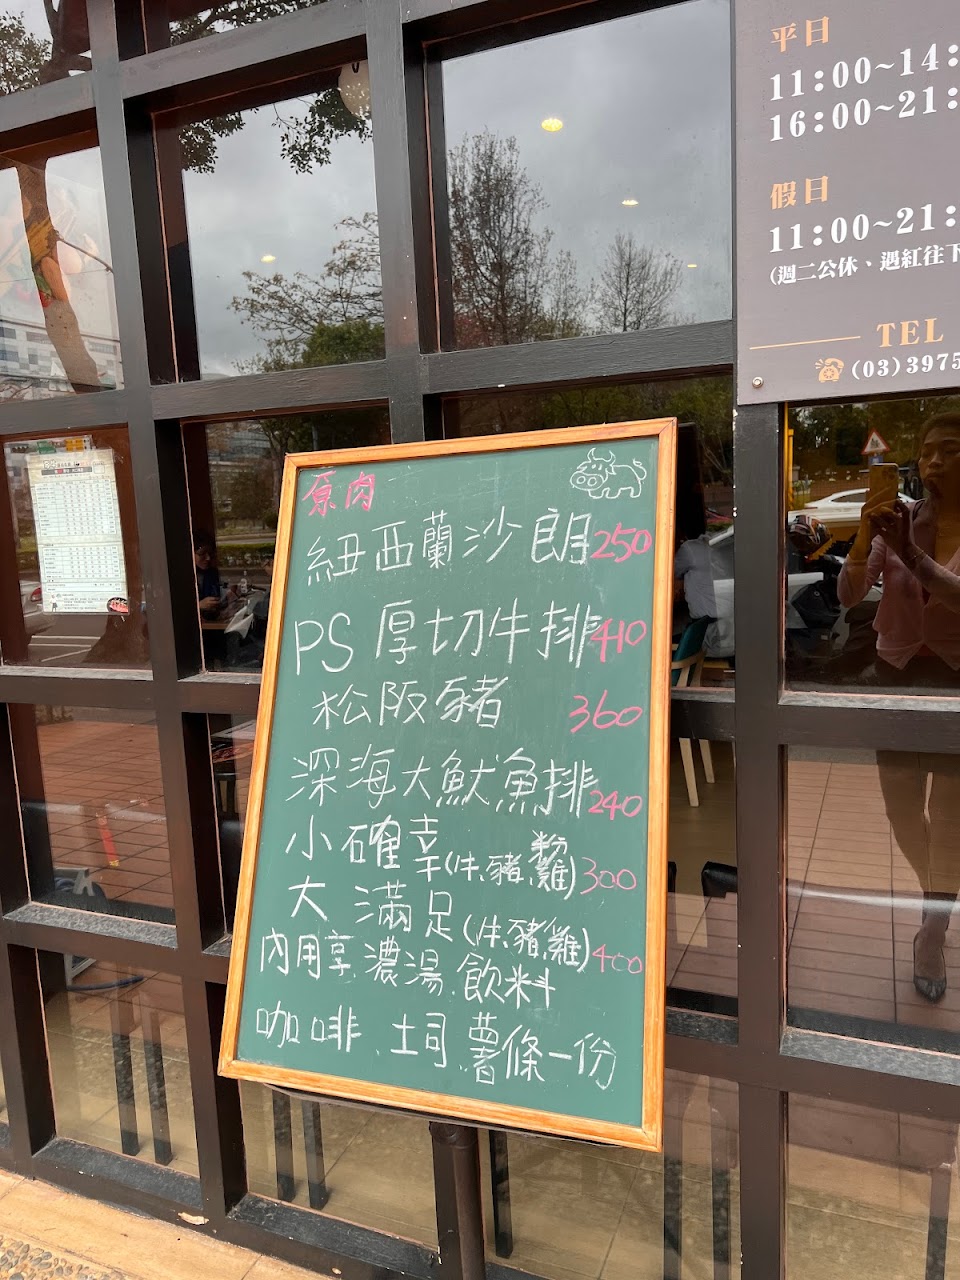 平日
11:00~14:
16:00~21:
假日
11:00~21:
(週二公休、遇紅往下
TEL
(03)3975
原肉
紐西蘭沙朗250
PS厚切牛排410
松阪豬 360
深海大魷魚排240
小確幸(牛、豬、粉雞)300
大滿足(牛、豬、雞)400
內用享濃湯.飲料
咖啡.土司.薯條一份